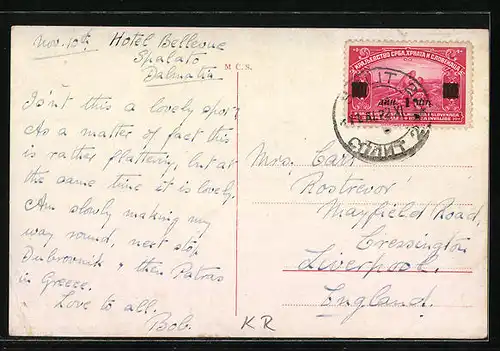 Nov. 10th Hotel Bellevue
Spalato
Dalmatia
Isn't this a lovely spot
As a matter of fact this
is rather flattering, but at
the same time it is lovely.
Am slowly making my
way round, next stop
Dubrovnik & then Patras
in Greece.
Love to all.
Bob.
M. C. S.
КРАЉЕВСТВО СРБА, ХРВАТА И СЛОВЕНАЦА
ДИН. 1 DIN.
СПЛИТ 2
Mrs. Carr
Rostrevor
Mayfield Road,
Cressington
Liverpool.
England.
KR